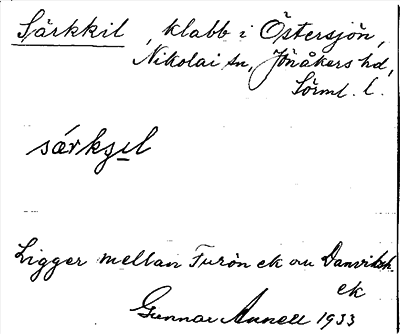 Särkkil, klabb i Östersjön,
Nikolai sn, Jönåkers hd,
Sörml. l.
särkʒil
Ligger mellan Turön ek ou
ek
Gunnar Annell 1933